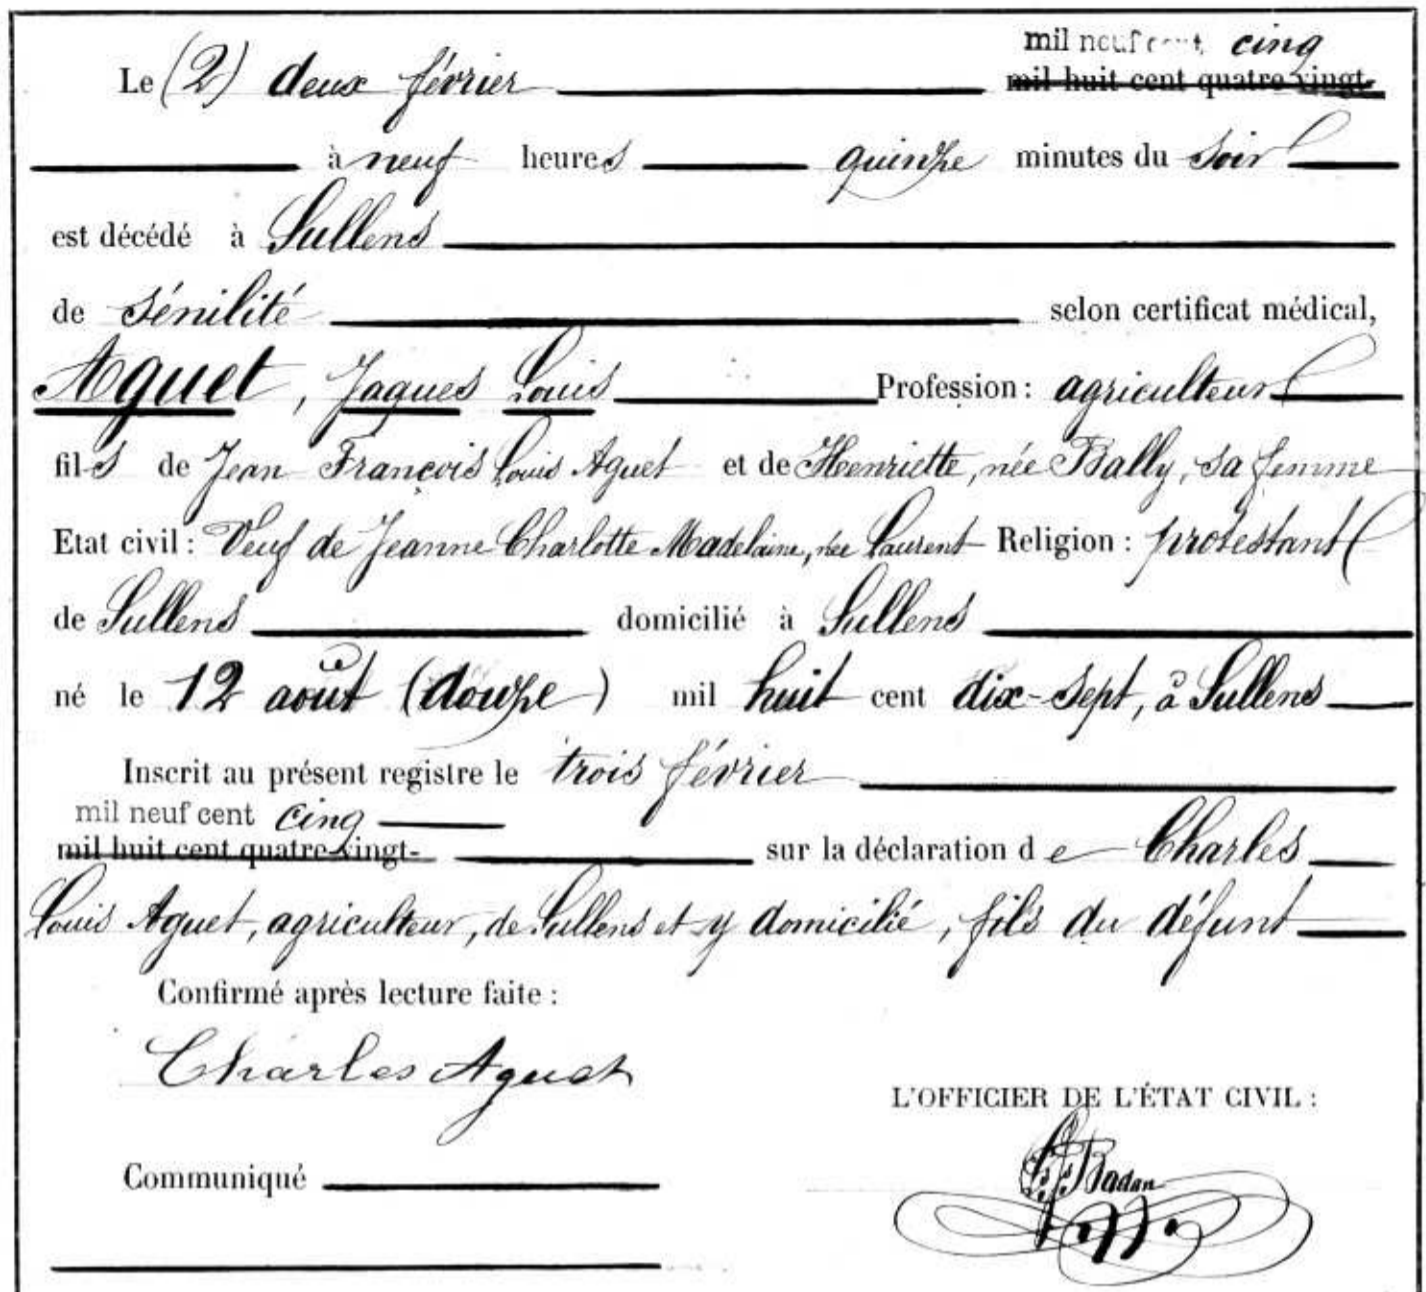 mil neuf cent cinq
Le (2) deux février mil huit cent quatre vingt-
à neuf heures quinze minutes du soir
est décédé à Sullens
de sénilité selon certificat médical,
Aguet, Jaques Louis Profession : agriculteur
fils de Jean François Louis Aguet et de Henriette, née Bally, sa femme
Etat civil : Veuf de Jeanne Charlotte Madelaine, née Laurent Religion : protestant
de Sullens domicilié à Sullens
né le 12 août (douze) mil huit cent dix-sept, à Sullens
Inscrit au présent registre le trois février
mil neuf cent cinq
mil huit cent quatre-vingt- sur la déclaration de Charles
Louis Aguet, agriculteur, de Sullens et y domicilié, fils du défunt
Confirmé après lecture faite :
Charles Aguet
L'OFFICIER DE L'ÉTAT CIVIL :
Badan
Communiqué